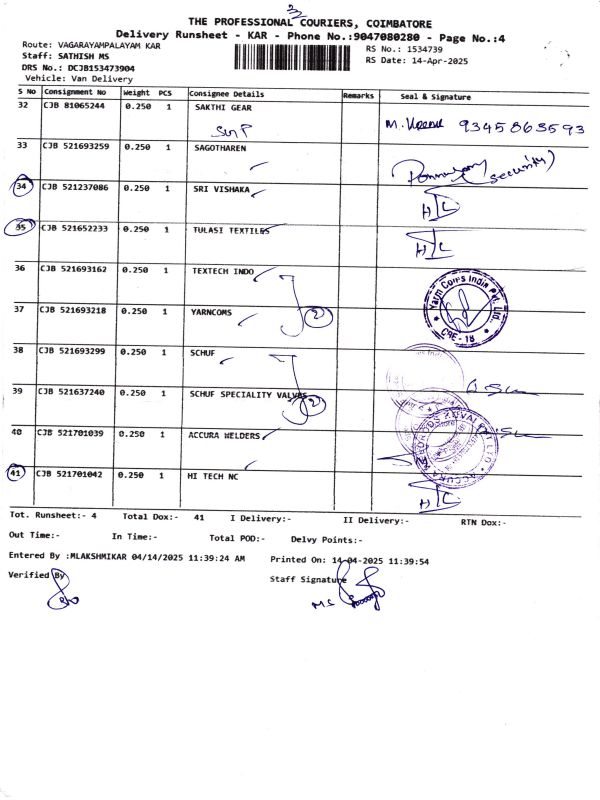 THE PROFESSIONAL COURIERS, COIMBATORE
Delivery Runsheet - KAR - Phone No.:9047080280 - Page No.:4
Route: VAGARAYAMPALAYAM KAR
RS No.: 1534739
Staff: SATHISH MS
RS Date: 14-Apr-2025
DRS No.: DCJB153473904
Vehicle: Van Delivery
S No Consignment No Weight PCS Consignee Details Remarks Seal & Signature
32 CJB 81065244 0.250 1 SAKTHI GEAR
9345863593
33 CJB 521693259 0.250 1 SAGOTHAREN
(Security)
34 CJB 521237086 0.250 1 SRI VISHAKA
35 CJB 521652233 0.250 1 TULASI TEXTILES
36 CJB 521693162 0.250 1 TEXTECH INDO
37 CJB 521693218 0.250 1 YARNCOMS
2
Yarn Coms India Pvt. Ltd.
CBE - 18
38 CJB 521693299 0.250 1 SCHUF
39 CJB 521637240 0.250 1 SCHUF SPECIALITY VALVES
2
40 CJB 521701039 0.250 1 ACCURA WELDERS
41 CJB 521701042 0.250 1 HI TECH NC
Tot. Runsheet:- 4 Total Dox:- 41 I Delivery:- II Delivery:- RTN Dox:-
Out Time:- In Time:- Total POD:- Delvy Points:-
Entered By :MLAKSHMIKAR 04/14/2025 11:39:24 AM Printed On: 14-04-2025 11:39:54
Verified By Staff Signature